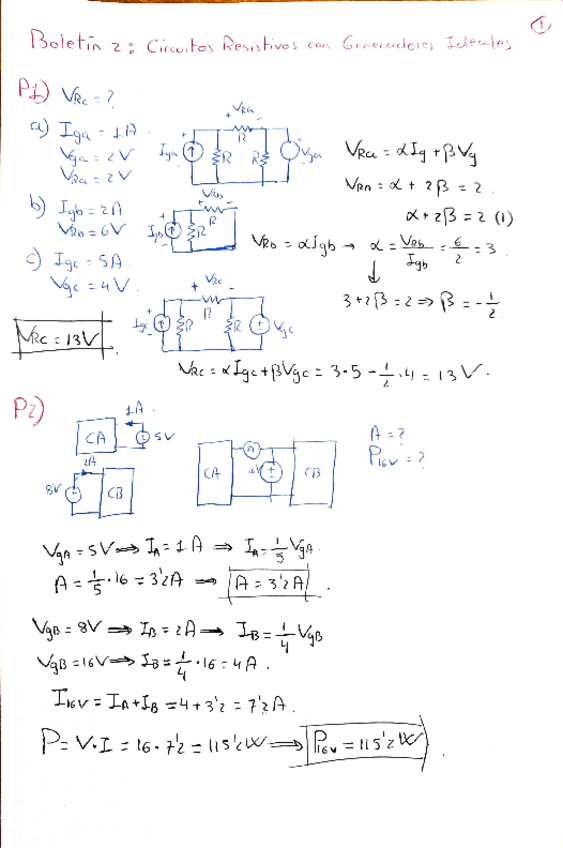 1
Boletín 2: Circuitos Resistivos con Generadores Ideales
P1) VRc = ?
a) Iga = 1A
Vga = 2V
VRa = 2V
+ VRa -
R
Iga
R
R
Vga
VRa = αIg + βVg
VRa = α + 2β = 2.
α + 2β = 2 (1)
b) Igb = 2A
VRb = 6V
VRb
R
Igb
R
VRb = αIgb → α = VRb/Igb = 6/2 = 3.
3 + 2β = 2 ⇒ β = -1/2
c) Igc = 5A
Vgc = 4V.
+ VRc -
R
Igc
R
R
Vgc
VRc = 13V
VRc = αIgc + βVgc = 3·5 - 1/2·4 = 13V.
P2)
1A.
CA
5V
2A
8V
CB
CA
A
CB
A = ?
P16V = ?
VgA = 5V ⇒ IA = 1A ⇒ IA = 1/5 VgA.
A = 1/5·16 = 3'2A ⇒ A = 3'2A.
VgB = 8V ⇒ IB = 2A ⇒ IB = 1/4 VgB
VgB = 16V ⇒ IB = 1/4·16 = 4A.
I16V = IA + IB = 4 + 3'2 = 7'2A.
P = V·I = 16·7'2 = 115'2W ⇒ P16V = 115'2W.